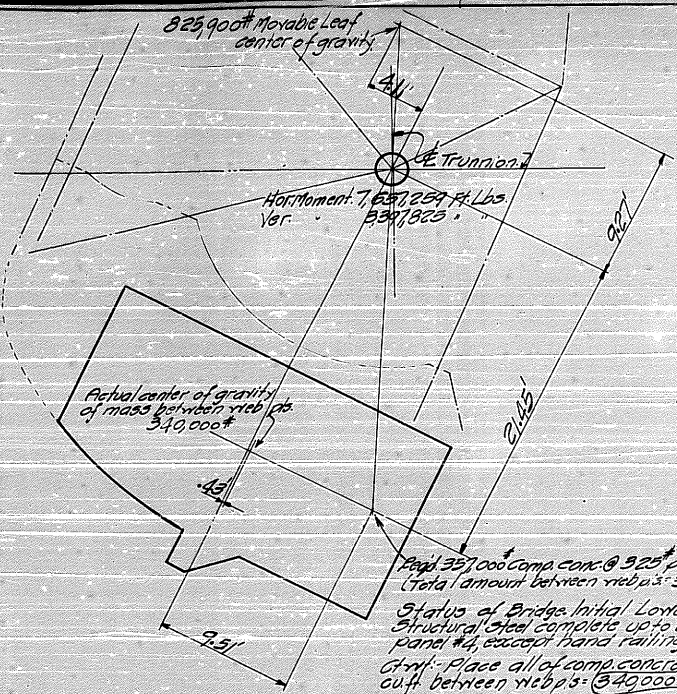 825,900# Movable Leaf
center of gravity
4.11'
℄ Trunnion
Hor. Moment. 7,657,259 Ft. Lbs.
Ver. " 3,397,825 " "
9.27'
21.45'
Actual center of gravity
of mass between web pls.
340,000#
.43'
9.51'
Req'd. 357,000# comp. conc. @ 325#
(Total amount between web pls.=
Status of Bridge. Initial
Structural Steel complete up to
panel #4, except hand railing
Ctwt:- Place all of comp. concr
cu.ft. between web pls.= (340,000